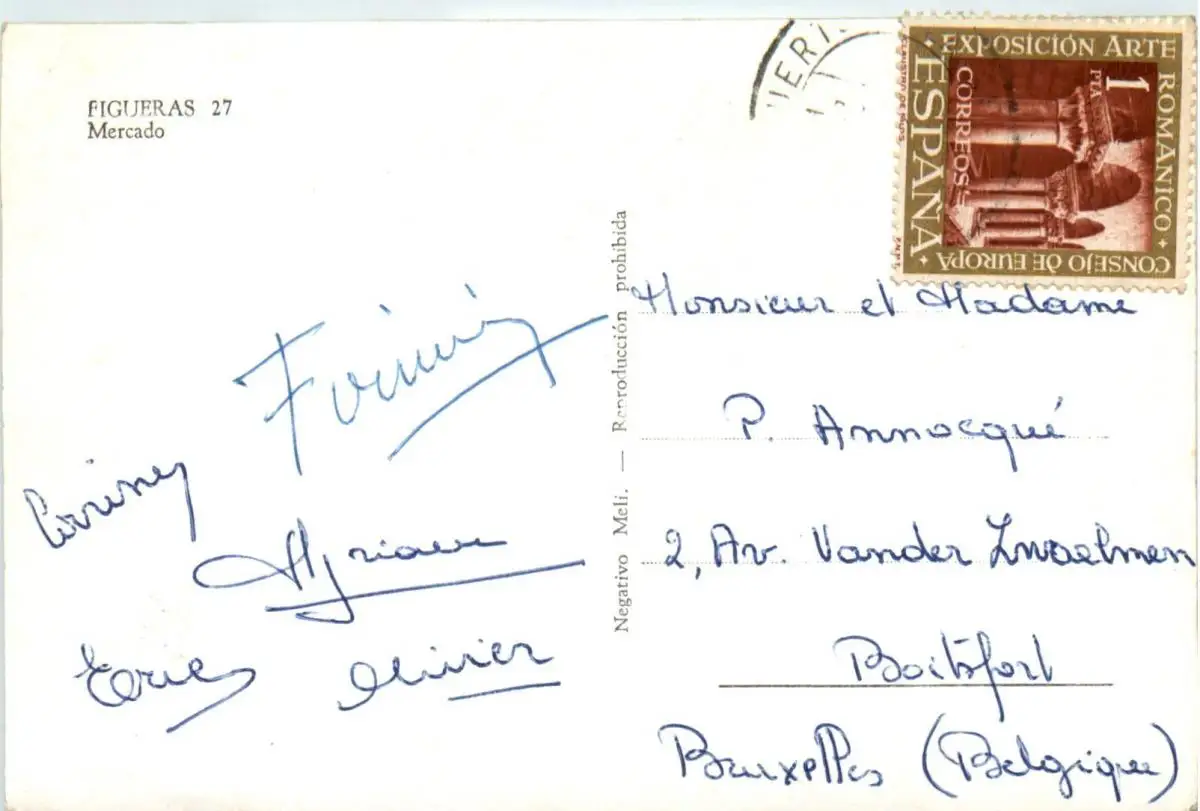 FIGUERAS 27
Mercado
EXPOSICIÓN ARTE ROMÁNICO
CONSEJO DE EUROPA
ESPAÑA
CORREOS
1 PTA
Negativo Meli. — Reproducción prohibida
Monsieur et Madame
P. Annocqué
2, Av. Vander Zwaelmen
Boitsfort
Bruxelles (Belgique)
Myriam
Eric Olivier